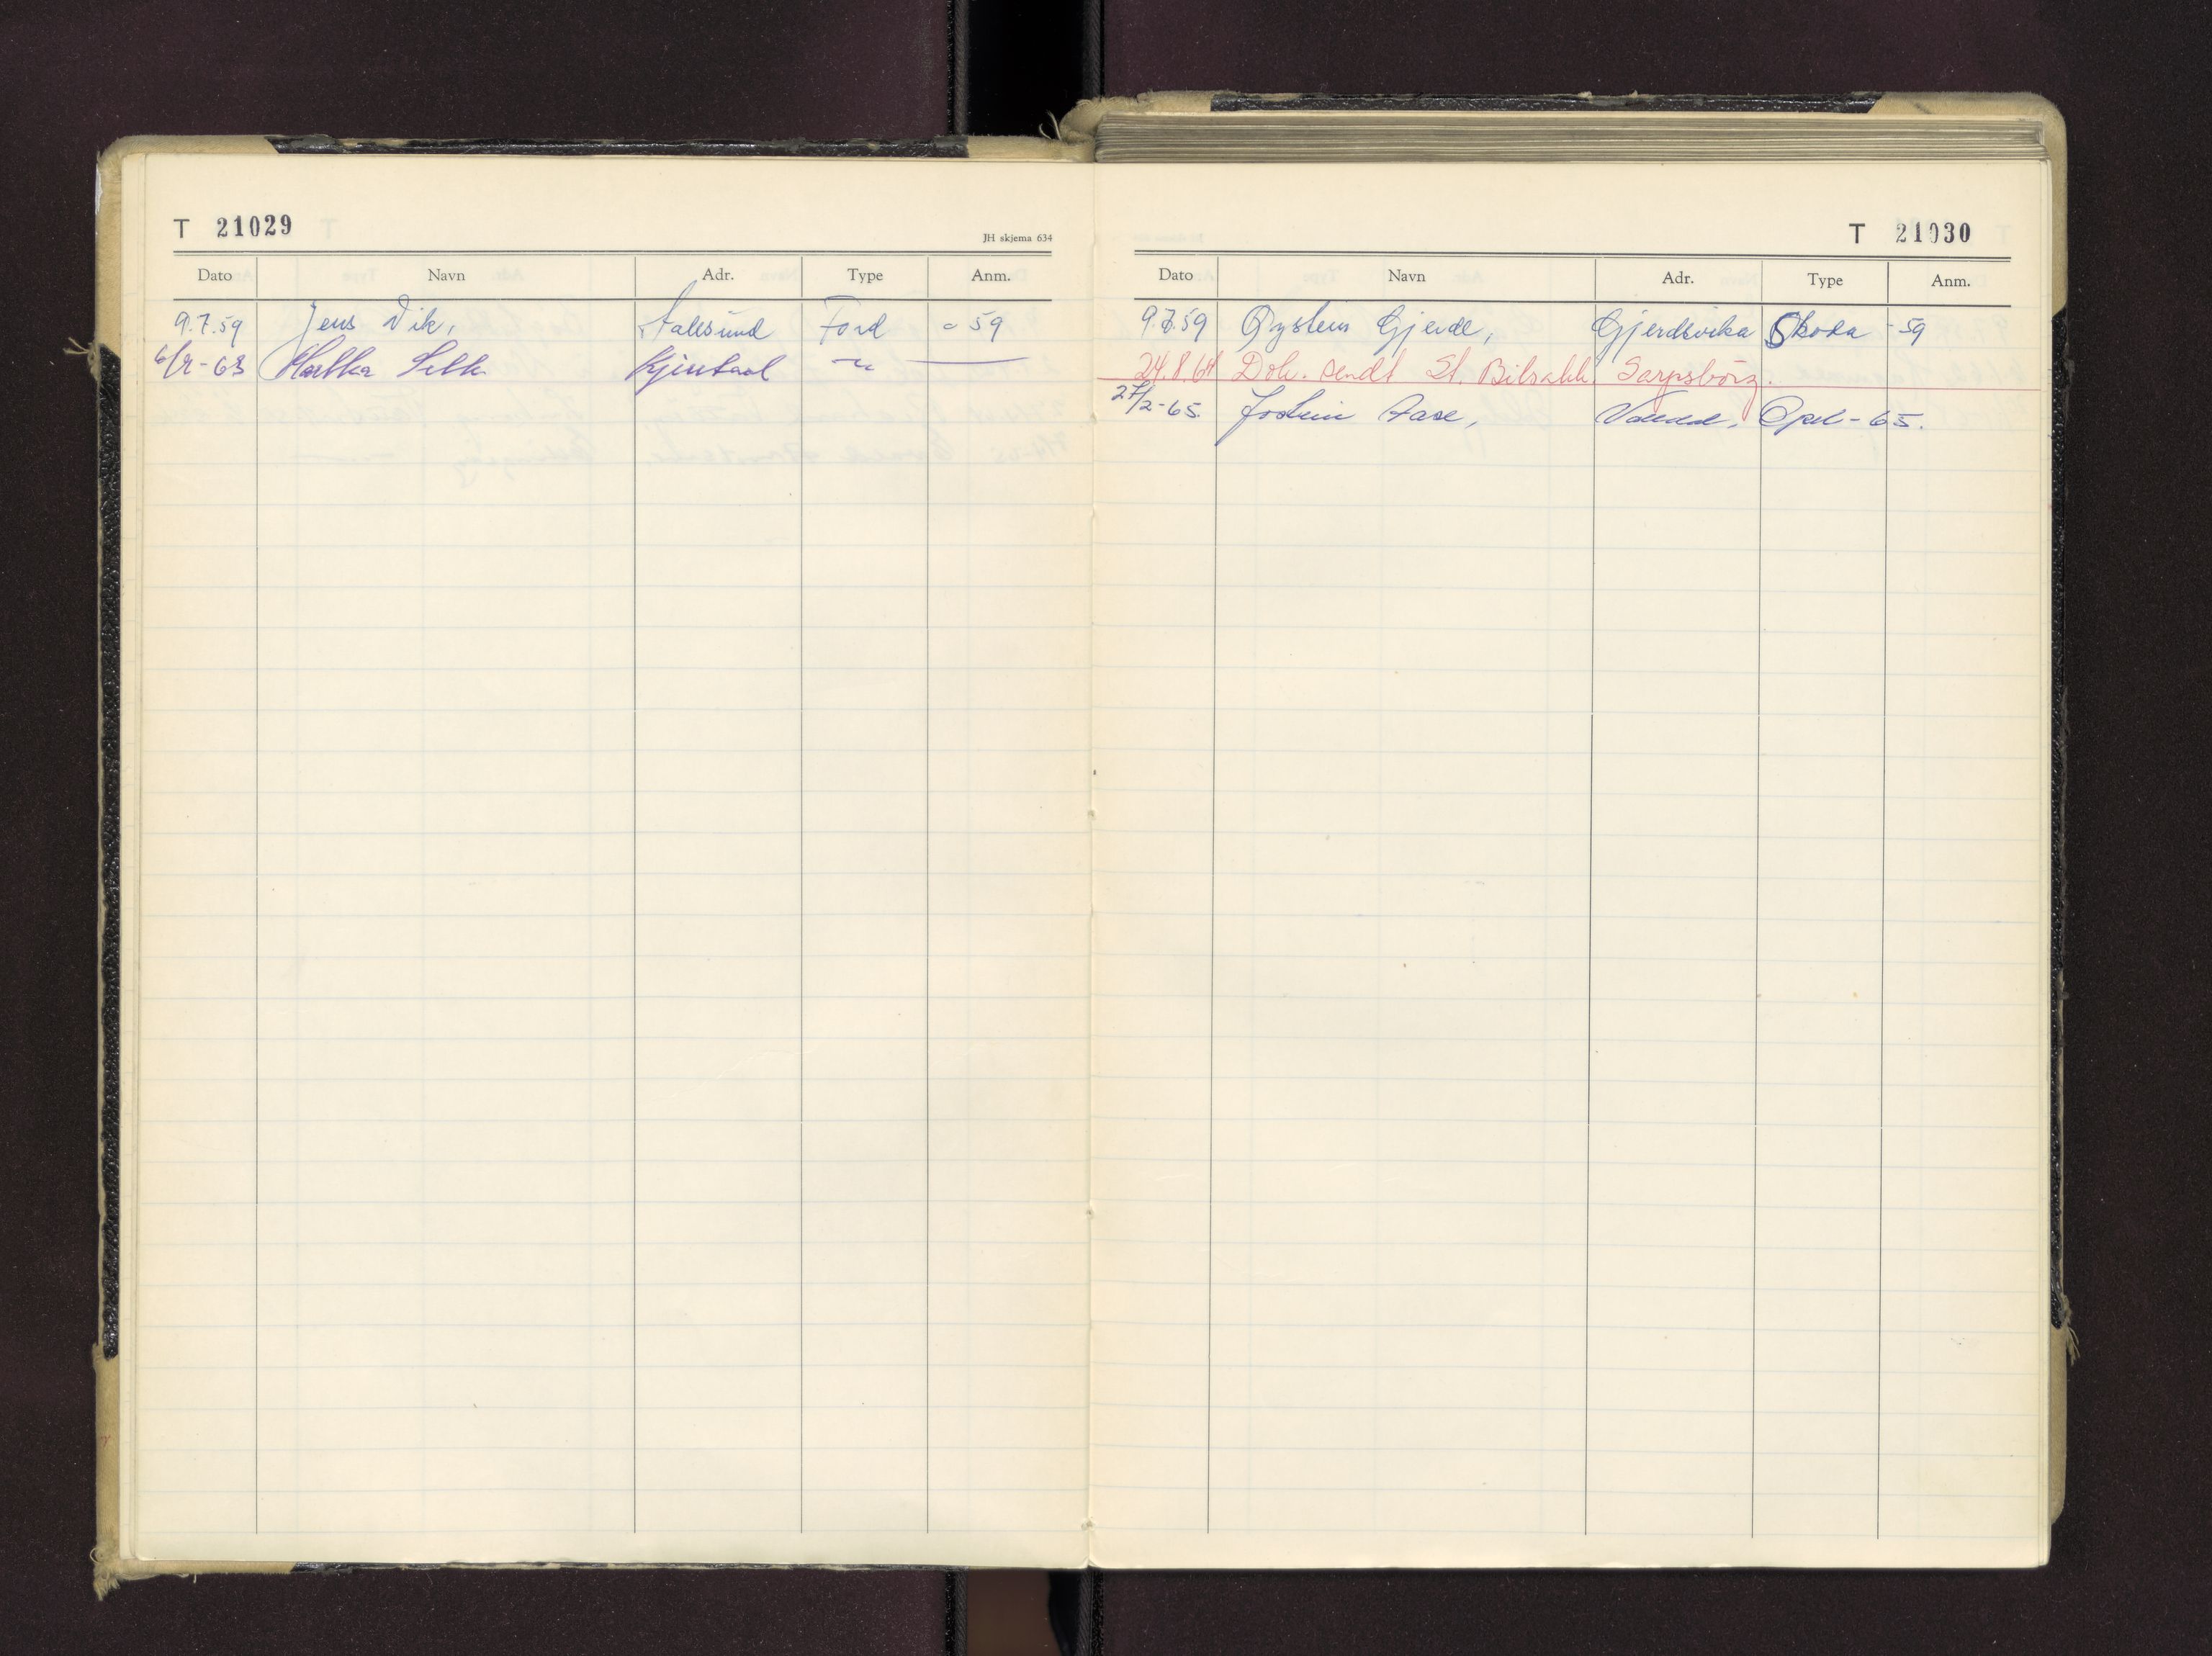 T 21029
JH skjema 634
Dato Navn Adr. Type Anm.
9.7.59 Jens Vik, Aalesund Ford - 59
-63
T 21030
Dato Navn Adr. Type Anm.
9.7.59 Øystein Gjerde, Gjerdsvika Skoda - 59
24.8.64 Dok. sendt St. Bilsakk. Sarpsborg.
27/2-65. Jostein Aase, Valldal, Opel - 65.